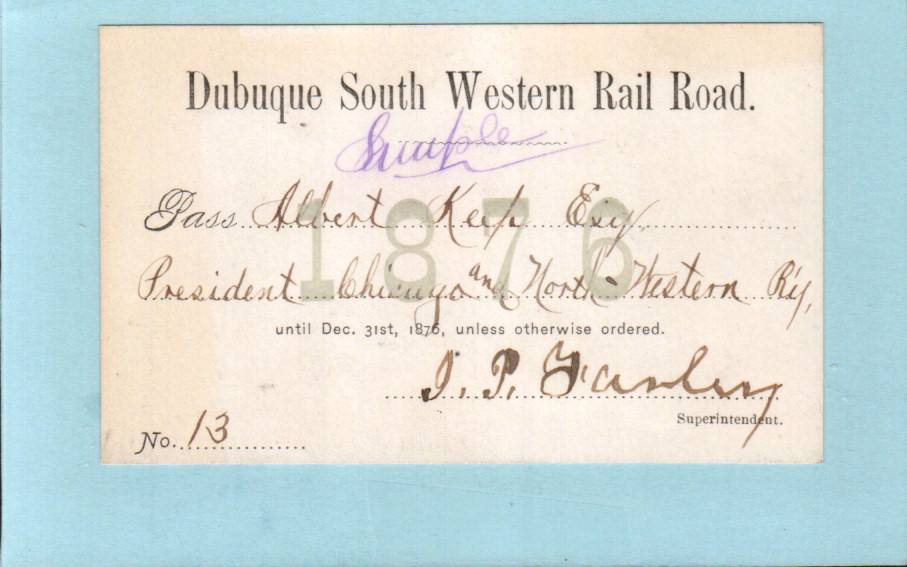 Dubuque South Western Rail Road.
Sample
Pass Albert Keep Esq
1876
President Chicago and North-Western R'y,
until Dec. 31st, 1876, unless otherwise ordered.
J. P. Farley
Superintendent.
No. 13